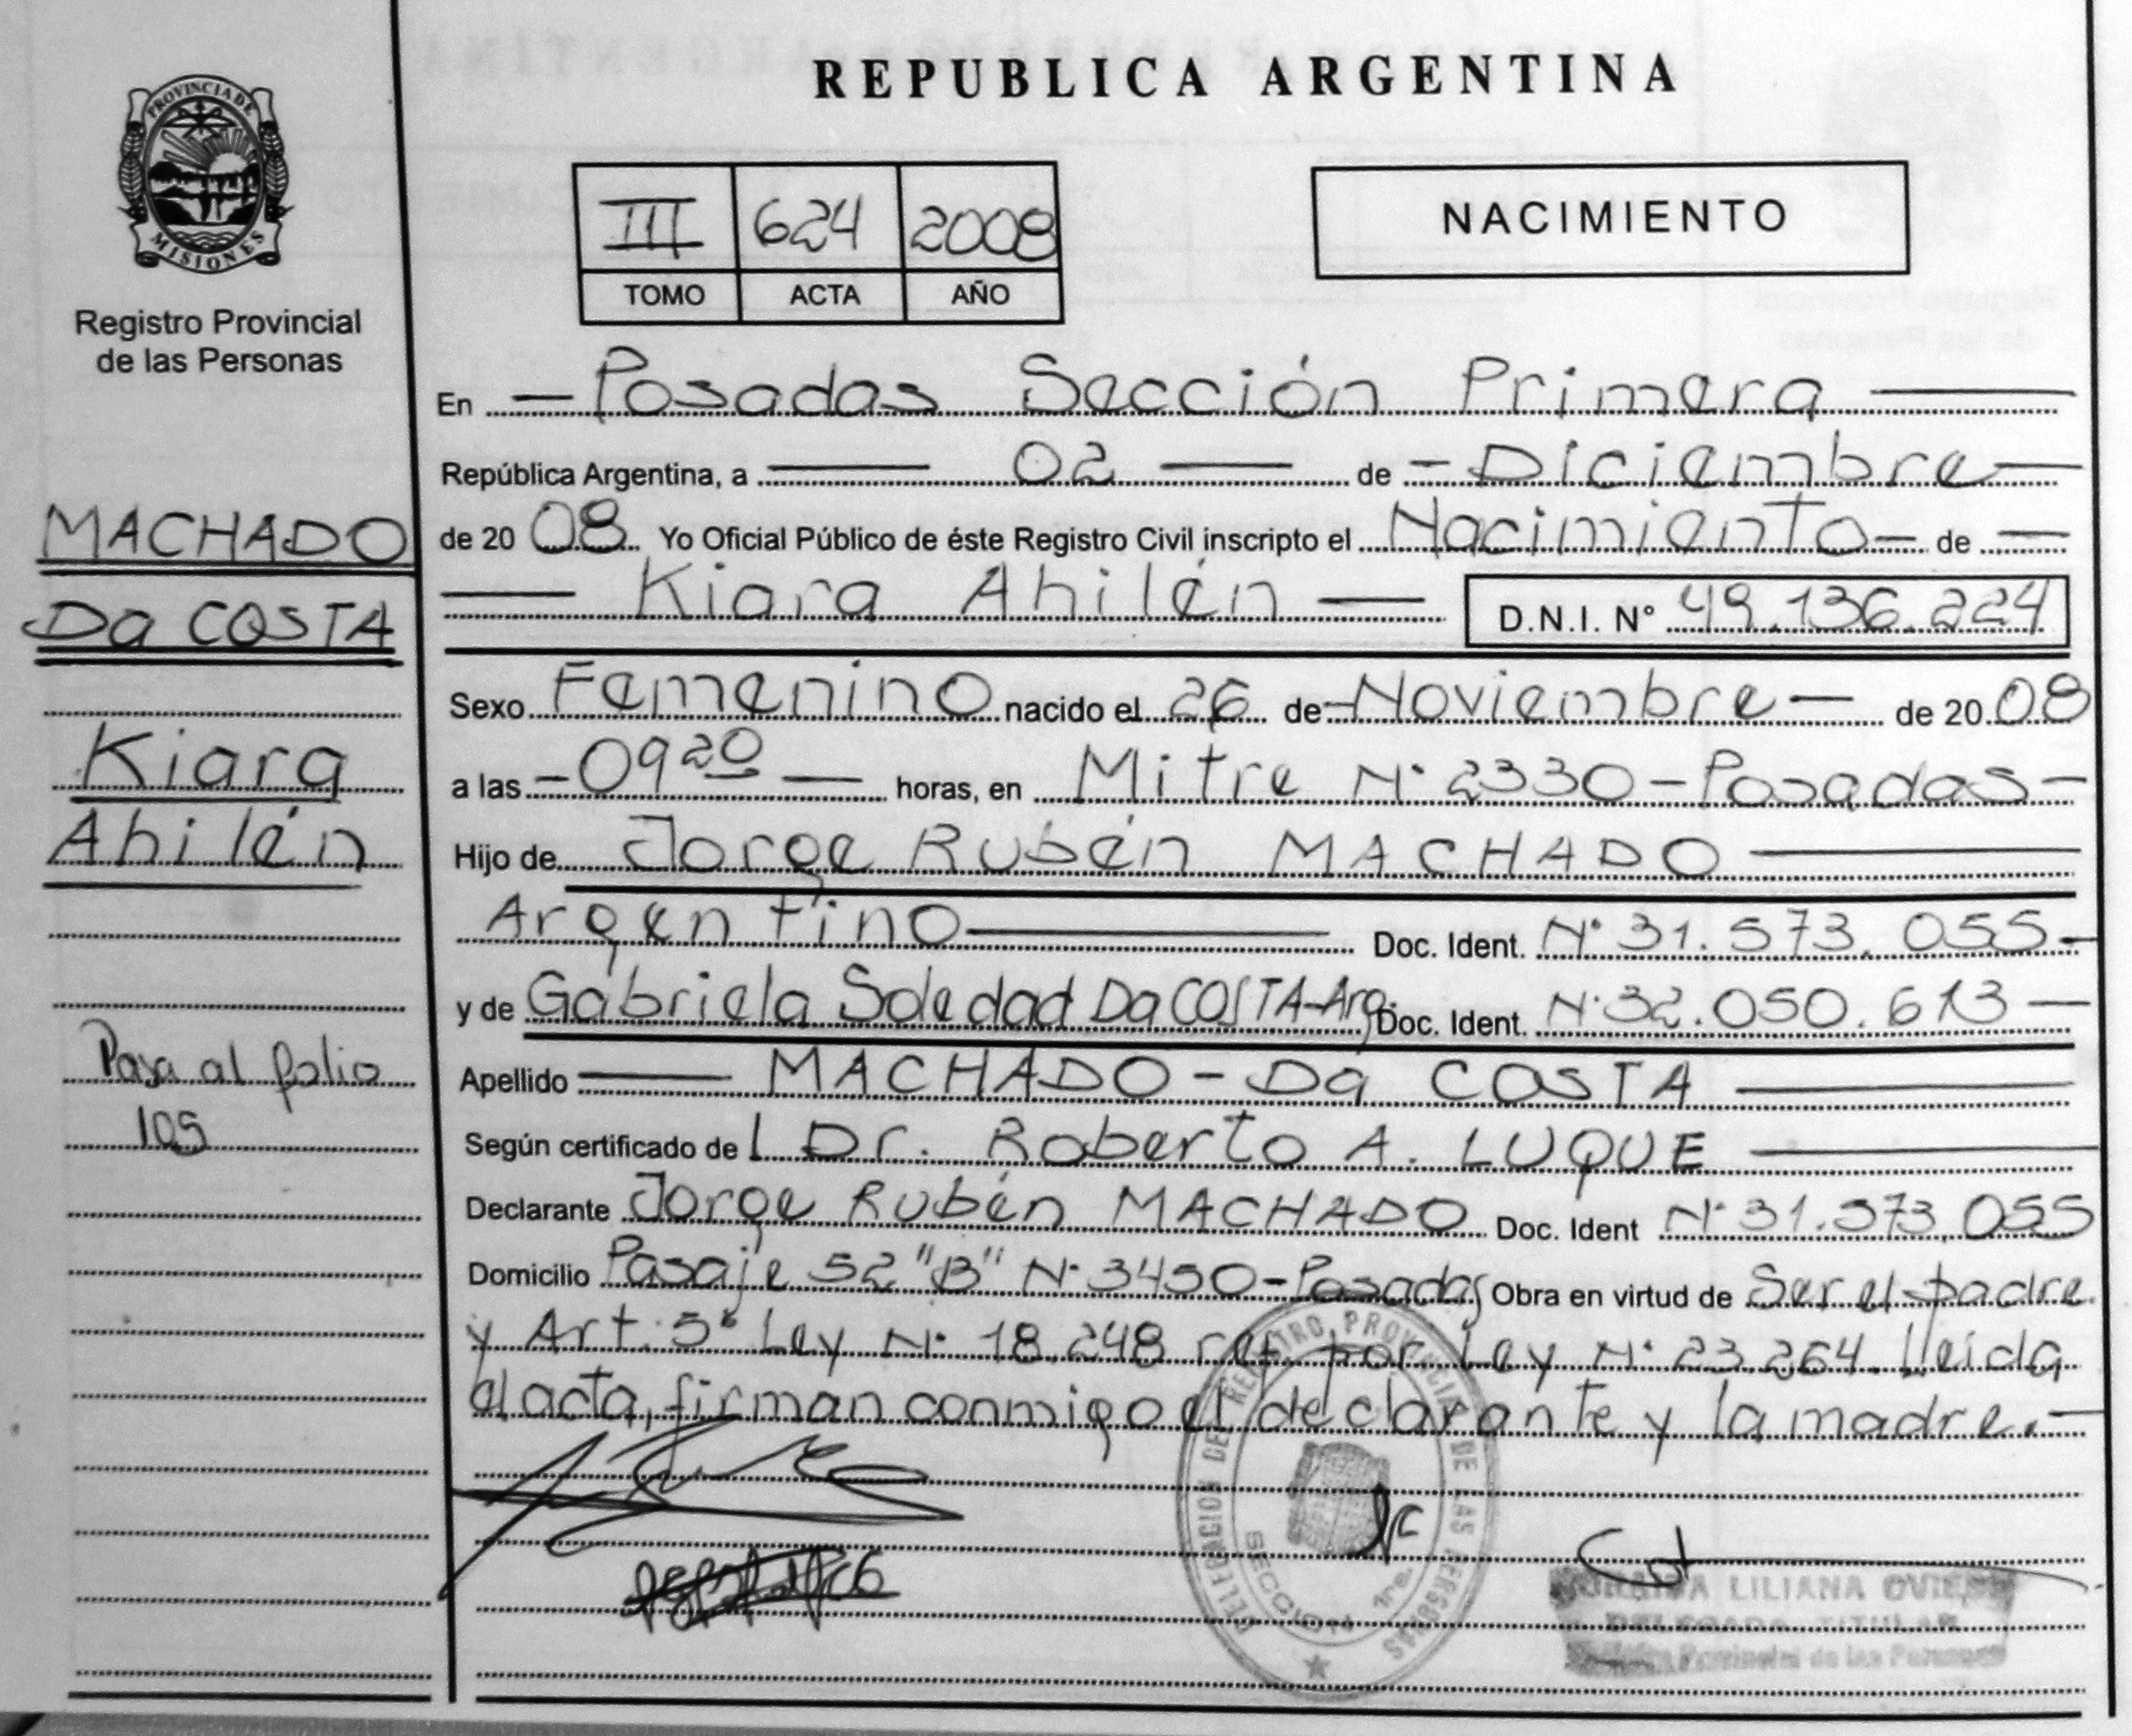 REPUBLICA ARGENTINA
PROVINCIA DE
MISIONES
Registro Provincial
de las Personas
III 624 2008
TOMO ACTA AÑO
NACIMIENTO
MACHADO
Da COSTA
Kiara
Ahilén
Pasa al folio
105
En - Posadas Sección Primera
República Argentina, a 02 de - Diciembre
de 2008 Yo Oficial Público de éste Registro Civil inscripto el Nacimiento - de
Kiara Ahilén D.N.I. N° 49.136.224
Sexo Femenino nacido el 26 de Noviembre de 2008
a las - 09 20 horas, en Mitre N° 2330 - Posadas -
Hijo de Jorge Rubén MACHADO
Argentino Doc. Ident. N° 31.573.055 -
y de Gabriela Soledad Da COSTA - Arg. Doc. Ident. N° 32.050.613
Apellido MACHADO - Da COSTA
Según certificado del Dr. Roberto A. LUQUE
Declarante Jorge Rubén MACHADO Doc. Ident N° 31.573.055
Domicilio Pasaje 52 "B" N° 3450 - Posadas Obra en virtud de Ser el padre
y Art. 5° Ley N° 18.248 ref. por Ley N° 23.264. Leida
el acta, firman conmigo el declarante y la madre. -
DELEGACION DEL REGISTRO PROVINCIAL DE LAS PERSONAS
SECCION 1ra.
LILIANA
DELEGADA TITULAR
Provincial de las Personas